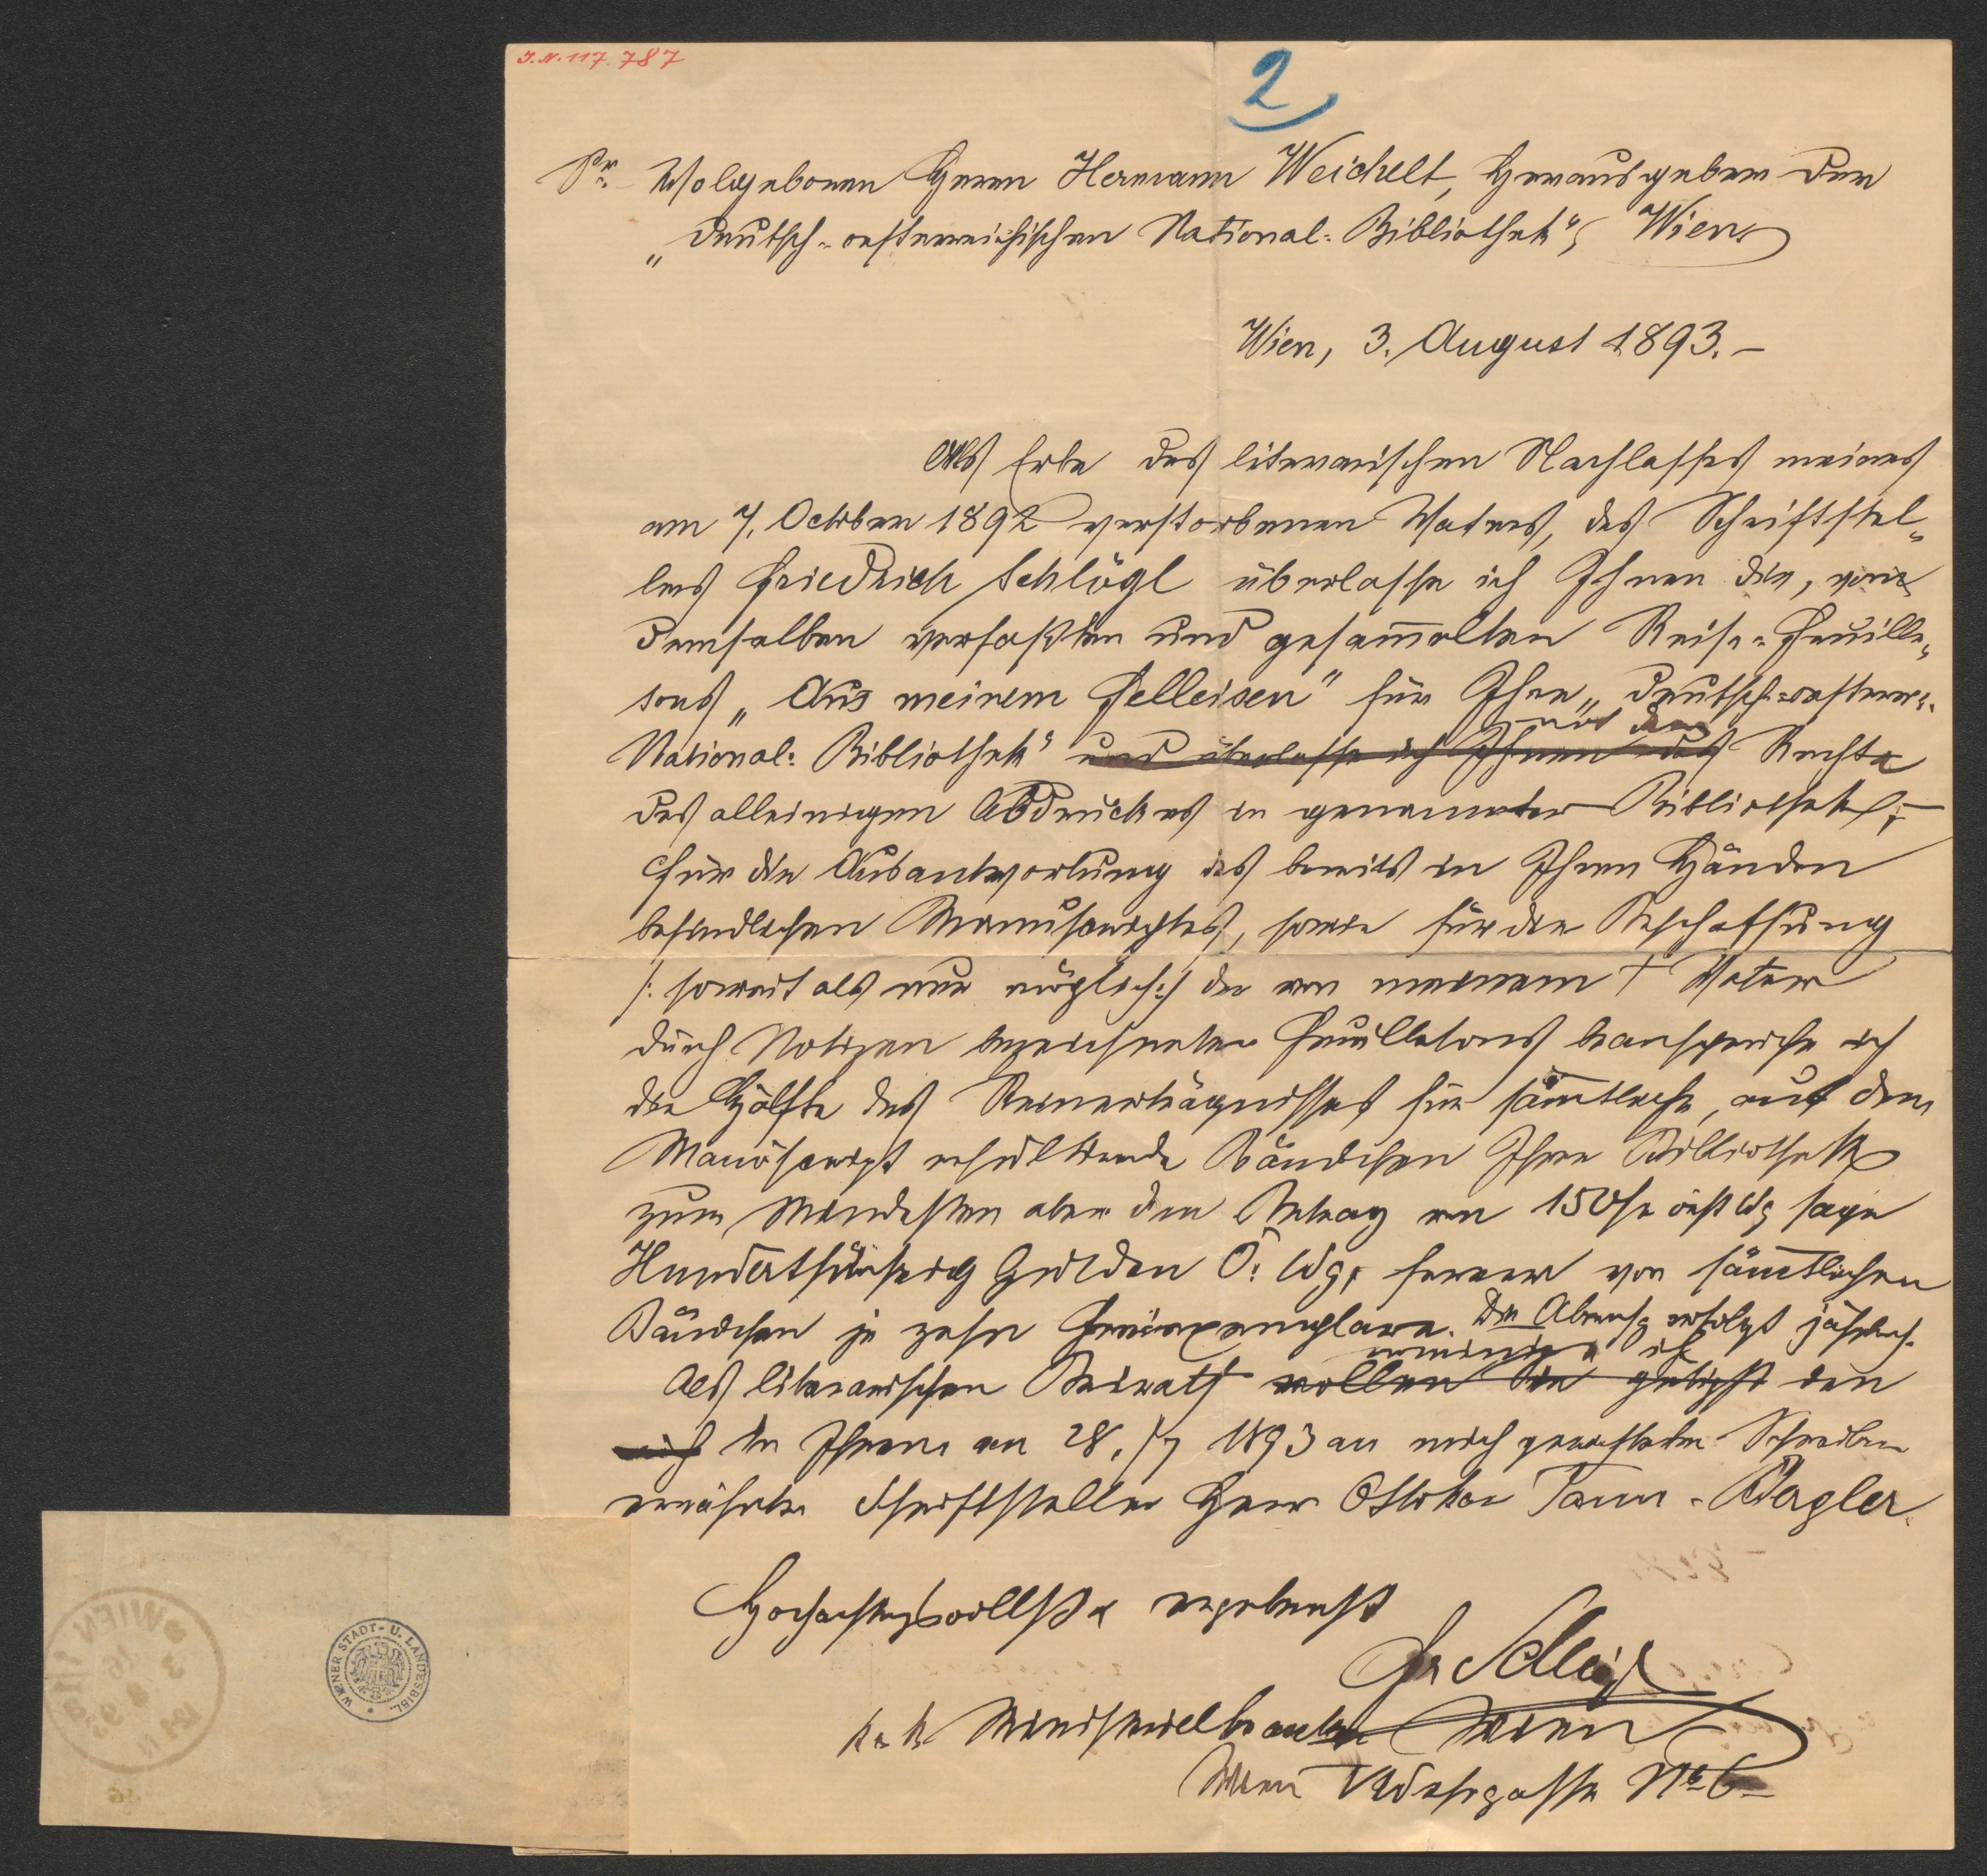 I.N. 117.787
2
Sr. Wolgeboren Herrn Hermann Weichelt, Herausgeber der
„Deutsch-oesterreichischen National-Bibliothek", Wien
Wien, 3. August 1893.-
Als Erbe des literarischen Nachlasses meines
am 7. October 1892 verstorbenen Vaters, des Schriftstel-
lers Friedrich Schlögl überlasse ich Ihnen die, von
demselben verfaßten und gesam̅elten Reise-Feuille-
tons „Aus meinem Felleisen" für Ihre „Deutsch-oesterr.
mit dem
National-Bibliothek" und überlasse ich Ihnen das Rechte
des alleinigen Abdruckes in genannter Bibliothek;-
Für die Ausantwortung des bereits in Ihren Händen
befindlichen Manuscriptes, sowie für die Beschaffung
/: soweit als nur möglich:/ der von meinem † Vater
durch Notizen bezeichneten Feuilletons beanspruche ich
die Hälfte des Reinerträgnisses für säm̅tliche, aus dem
Manuscript resultirende Bändchen Ihrer Bibliothek
zum Mindesten aber den Betrag von 150 fl öst Wg sage
Hundertfünfzig Gulden Ö. Wg, ferner von säm̅tlichen
Bändchen je zehn Freiexemplare. Die Abrechg erfolgt jährlich.
ich
Als literarischen Beirath wollen Sie gütigst den
mich in Ihrem am 28./7 1893 an mich gerichteten Schreiben
erwähnten Schriftsteller Herrn Ottokar Tann-Bergler.
Hochachtungsvollst ergebenst
Fr Schlögl
k. k. Ministerialbeamter Wien
Wien No 6
WIENER STADT- U. LANDESBIBL.
WIEN